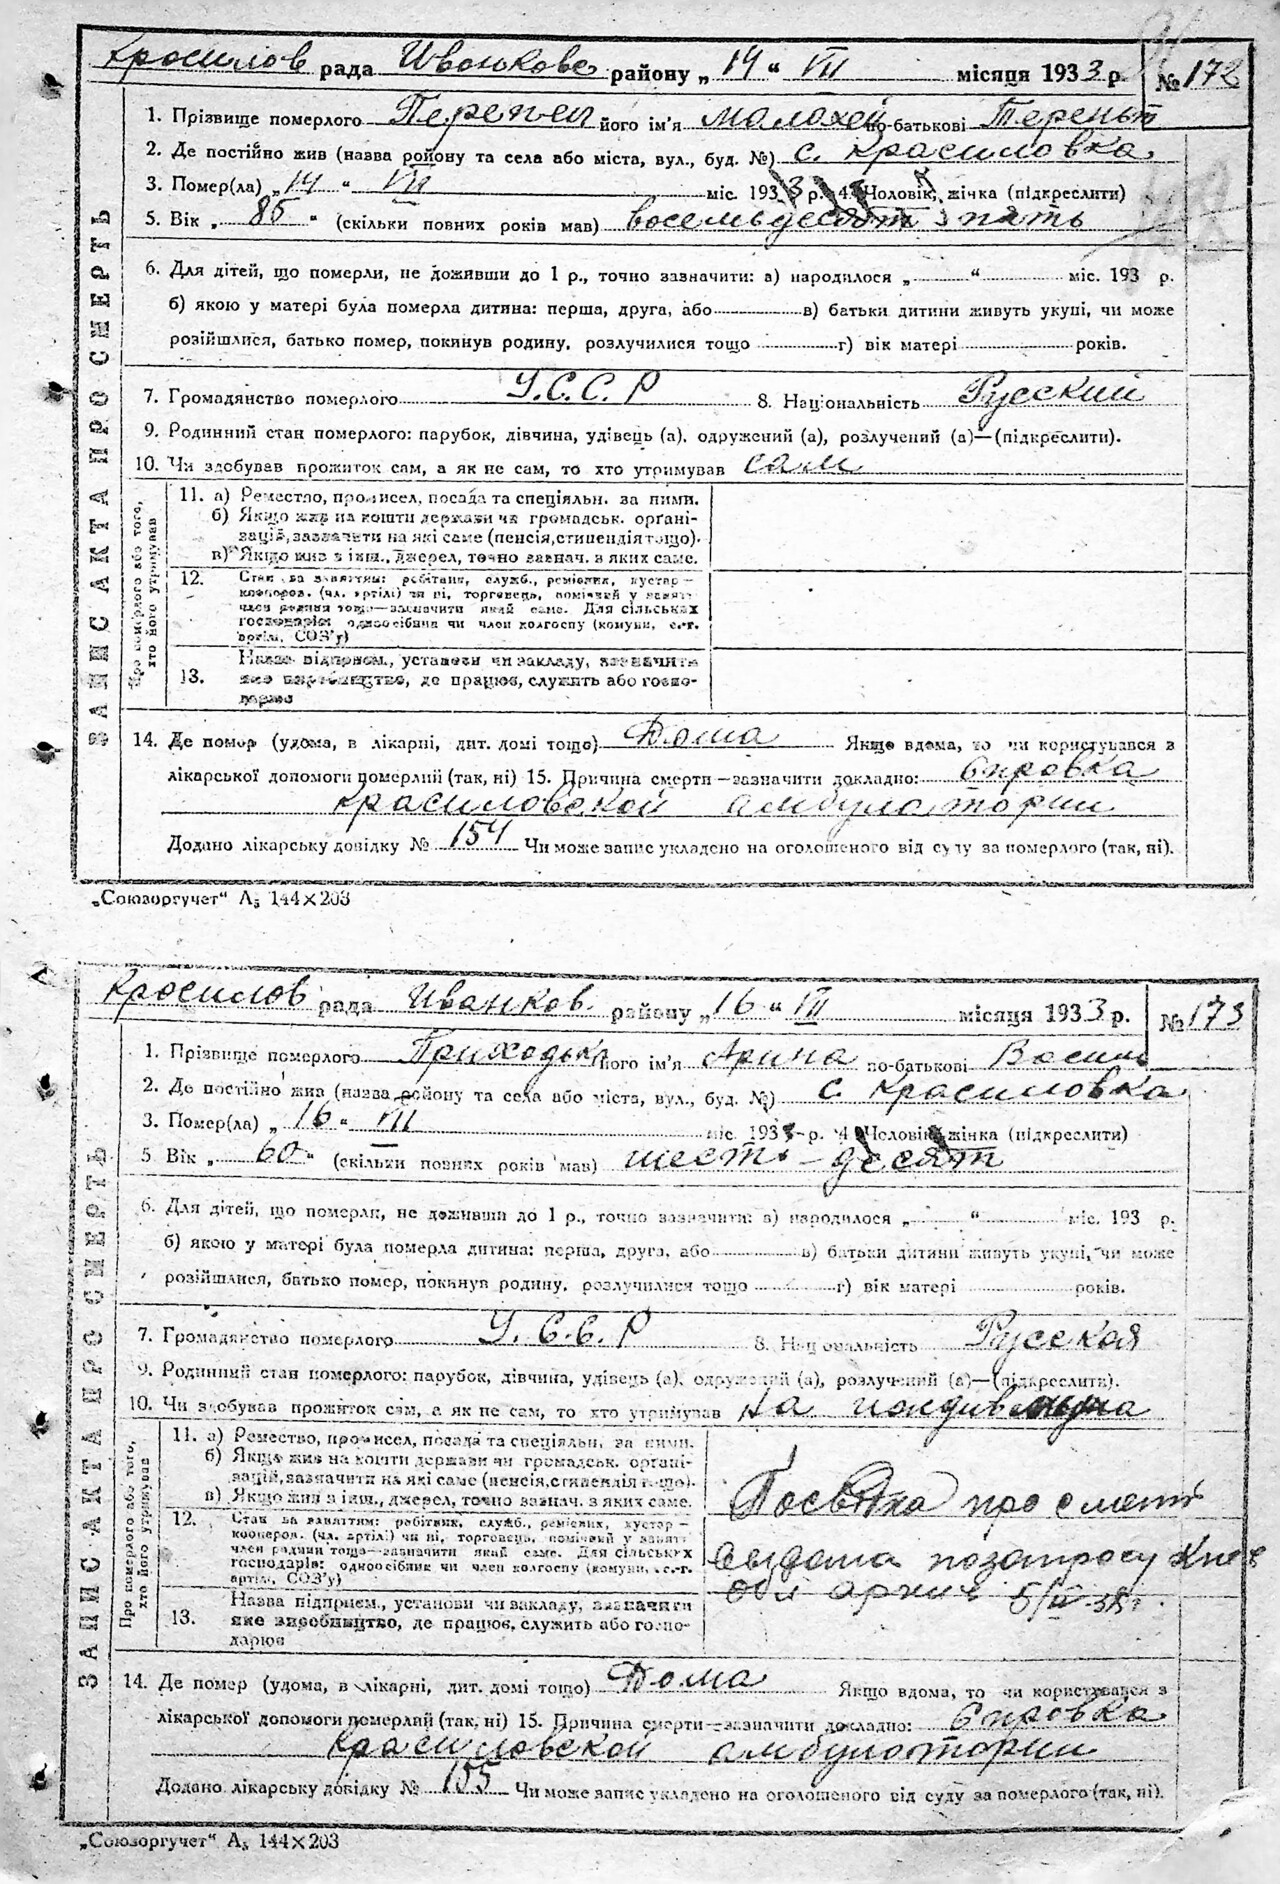 Красилов рада Иванкове району „14 “ VII місяця 1933 р. № 172
1. Прізвище померлого Перепел його ім'я Малахей по-батькові Терент
2. Де постійно жив (назва району та села або міста, вул., буд. №) с. Красиловка
3. Помер(ла) „14 “ VII міс. 1933 р. 4. Чоловік, жінка (підкреслити)
5. Вік „ 85 “ (скільки повних років мав) восемьдесят пять
6. Для дітей, що померли, не доживши до 1 р., точно зазначити: а) народилося „ “ міс. 193 р.
б) якою у матері була померла дитина: перша, друга, або в) батьки дитини живуть укупі, чи може
розійшлися, батько помер, покинув родину, розлучилися тощо г) вік матері років.
7. Громадянство померлого У.С.С.Р 8. Національність Русский
9. Родинний стан померлого: парубок, дівчина, удівець (а), одружений (а), розлучений (а)—(підкреслити).
10. Чи здобував прожиток сам, а як не сам, то хто утримував сам
ЗАПИС АКТА ПРО СМЕРТЬ
Про померлого або того, хто його утримував
11. а) Ремество, промисел, посада та спеціяльн. за ними.
б) Якщо жив на кошти держави чи громадськ. органі-
зацій, зазначити на які саме (пенсія, стипендія тощо).
в) Якщо жив з інш., джерел, точно зазнач. з яких саме.
12. Стан за заняттям: робітник, служб., ремісник, кустар—
кооперов. (чл. артілі) чи ні, торговець, помічний у занятт
член родини тощо—зазначити який саме. Для сільських
господарів: одноосібник чи член колгоспу (комуни, с.-г.
артілі, СОЗ'у)
13. Назва підприєм., установи чи закладу, зазначити
яке виробництво, де працює, служить або госпо-
дарює
14. Де помер (удома, в лікарні, дит. домі тощо) Дома Якщо вдома, то чи користувався з
лікарської допомоги померлий (так, ні) 15. Причина смерти—зазначити докладно: Справка
Красиловской амбулатории
Додано лікарську довідку № 154 Чи може запис укладено на оголошеного від суду за померлого (так, ні).
„Союзоргучет“ А₅ 144×203
Красилов рада Иванков. району „16 “ VII місяця 1933 р. № 173
1. Прізвище померлого Приходьк його ім'я Арина по-батькові Васили
2. Де постійно жив (назва району та села або міста, вул., буд. №) с. Красиловка
3. Помер(ла) „ 16 “ VII міс. 1933 р. 4. Чоловік, жінка (підкреслити)
5 Вік „ 60 “ (скільки повних років мав) шесть-десят
6. Для дітей, що померли, не доживши до 1 р., точно зазначити: а) народилося „ “ міс. 193 р.
б) якою у матері була померла дитина: перша, друга, або в) батьки дитини живуть укупі, чи може
розійшлися, батько помер, покинув родину, розлучилися тощо г) вік матері років.
7. Громадянство померлого У.С.С.Р 8. Національність Русская
9. Родинний стан померлого: парубок, дівчина, удівець (а), одружений (а), розлучений (а)—(підкреслити).
10. Чи здобував прожиток сам, а як не сам, то хто утримував на
ЗАПИС АКТА ПРО СМЕРТЬ
Про померлого або того, хто його утримував
11. а) Ремество, промисел, посада та спеціяльн. за ними.
б) Якщо жив на кошти держави чи громадськ. органі-
зацій, зазначити на які саме (пенсія, стипендія тощо).
в) Якщо жив з інш., джерел, точно зазнач. з яких саме.
12. Стан за заняттям: робітник, служб., ремісник, кустар—
кооперов. (чл. артілі) чи ні, торговець, помічний у занятт
член родини тощо—зазначити який саме. Для сільських
господарів: одноосібник чи член колгоспу (комуни, с.-г.
артілі, СОЗ'у)
13. Назва підприєм., установи чи закладу, зазначити
яке виробництво, де працює, служить або госпо-
дарює
Посвідка про смерть
видана по запросу Киев
обл архив
14. Де помер (удома, в лікарні, дит. домі тощо) Дома Якщо вдома, то чи користувався з
лікарської допомоги померлий (так, ні) 15. Причина смерти—зазначити докладно: Справка
Красиловской амбулатории
Додано лікарську довідку № 155 Чи може запис укладено на оголошеного від суду за померлого (так, ні).
„Союзоргучет“ А₅ 144×203